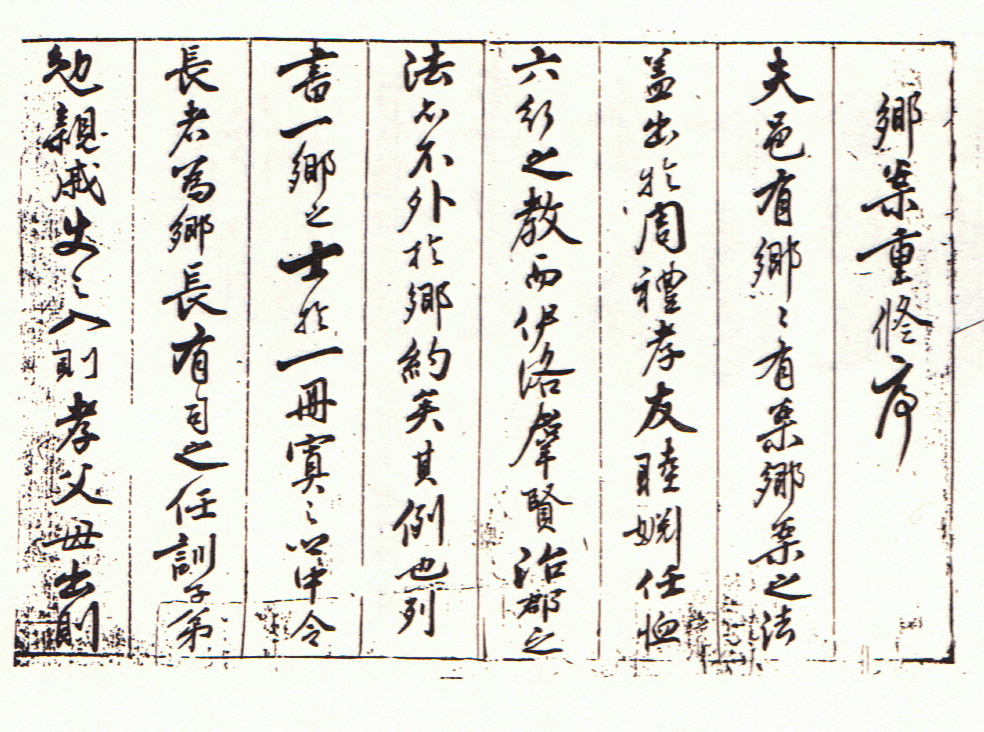 鄕案重修序
夫邑有鄕〻有案鄕案之法
盖出於周禮孝友睦婣任恤
六行之敎而伊洛羣賢治郡之
法亦不外於鄕約矣其例也列
書一鄕之士於一冊寘〻公中令
長老爲鄕長有司之任訓子弟
勉親戚使之入則孝父母出則